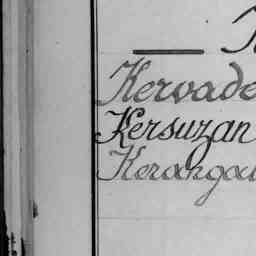 Kervade
Kersuzan
Kerangal